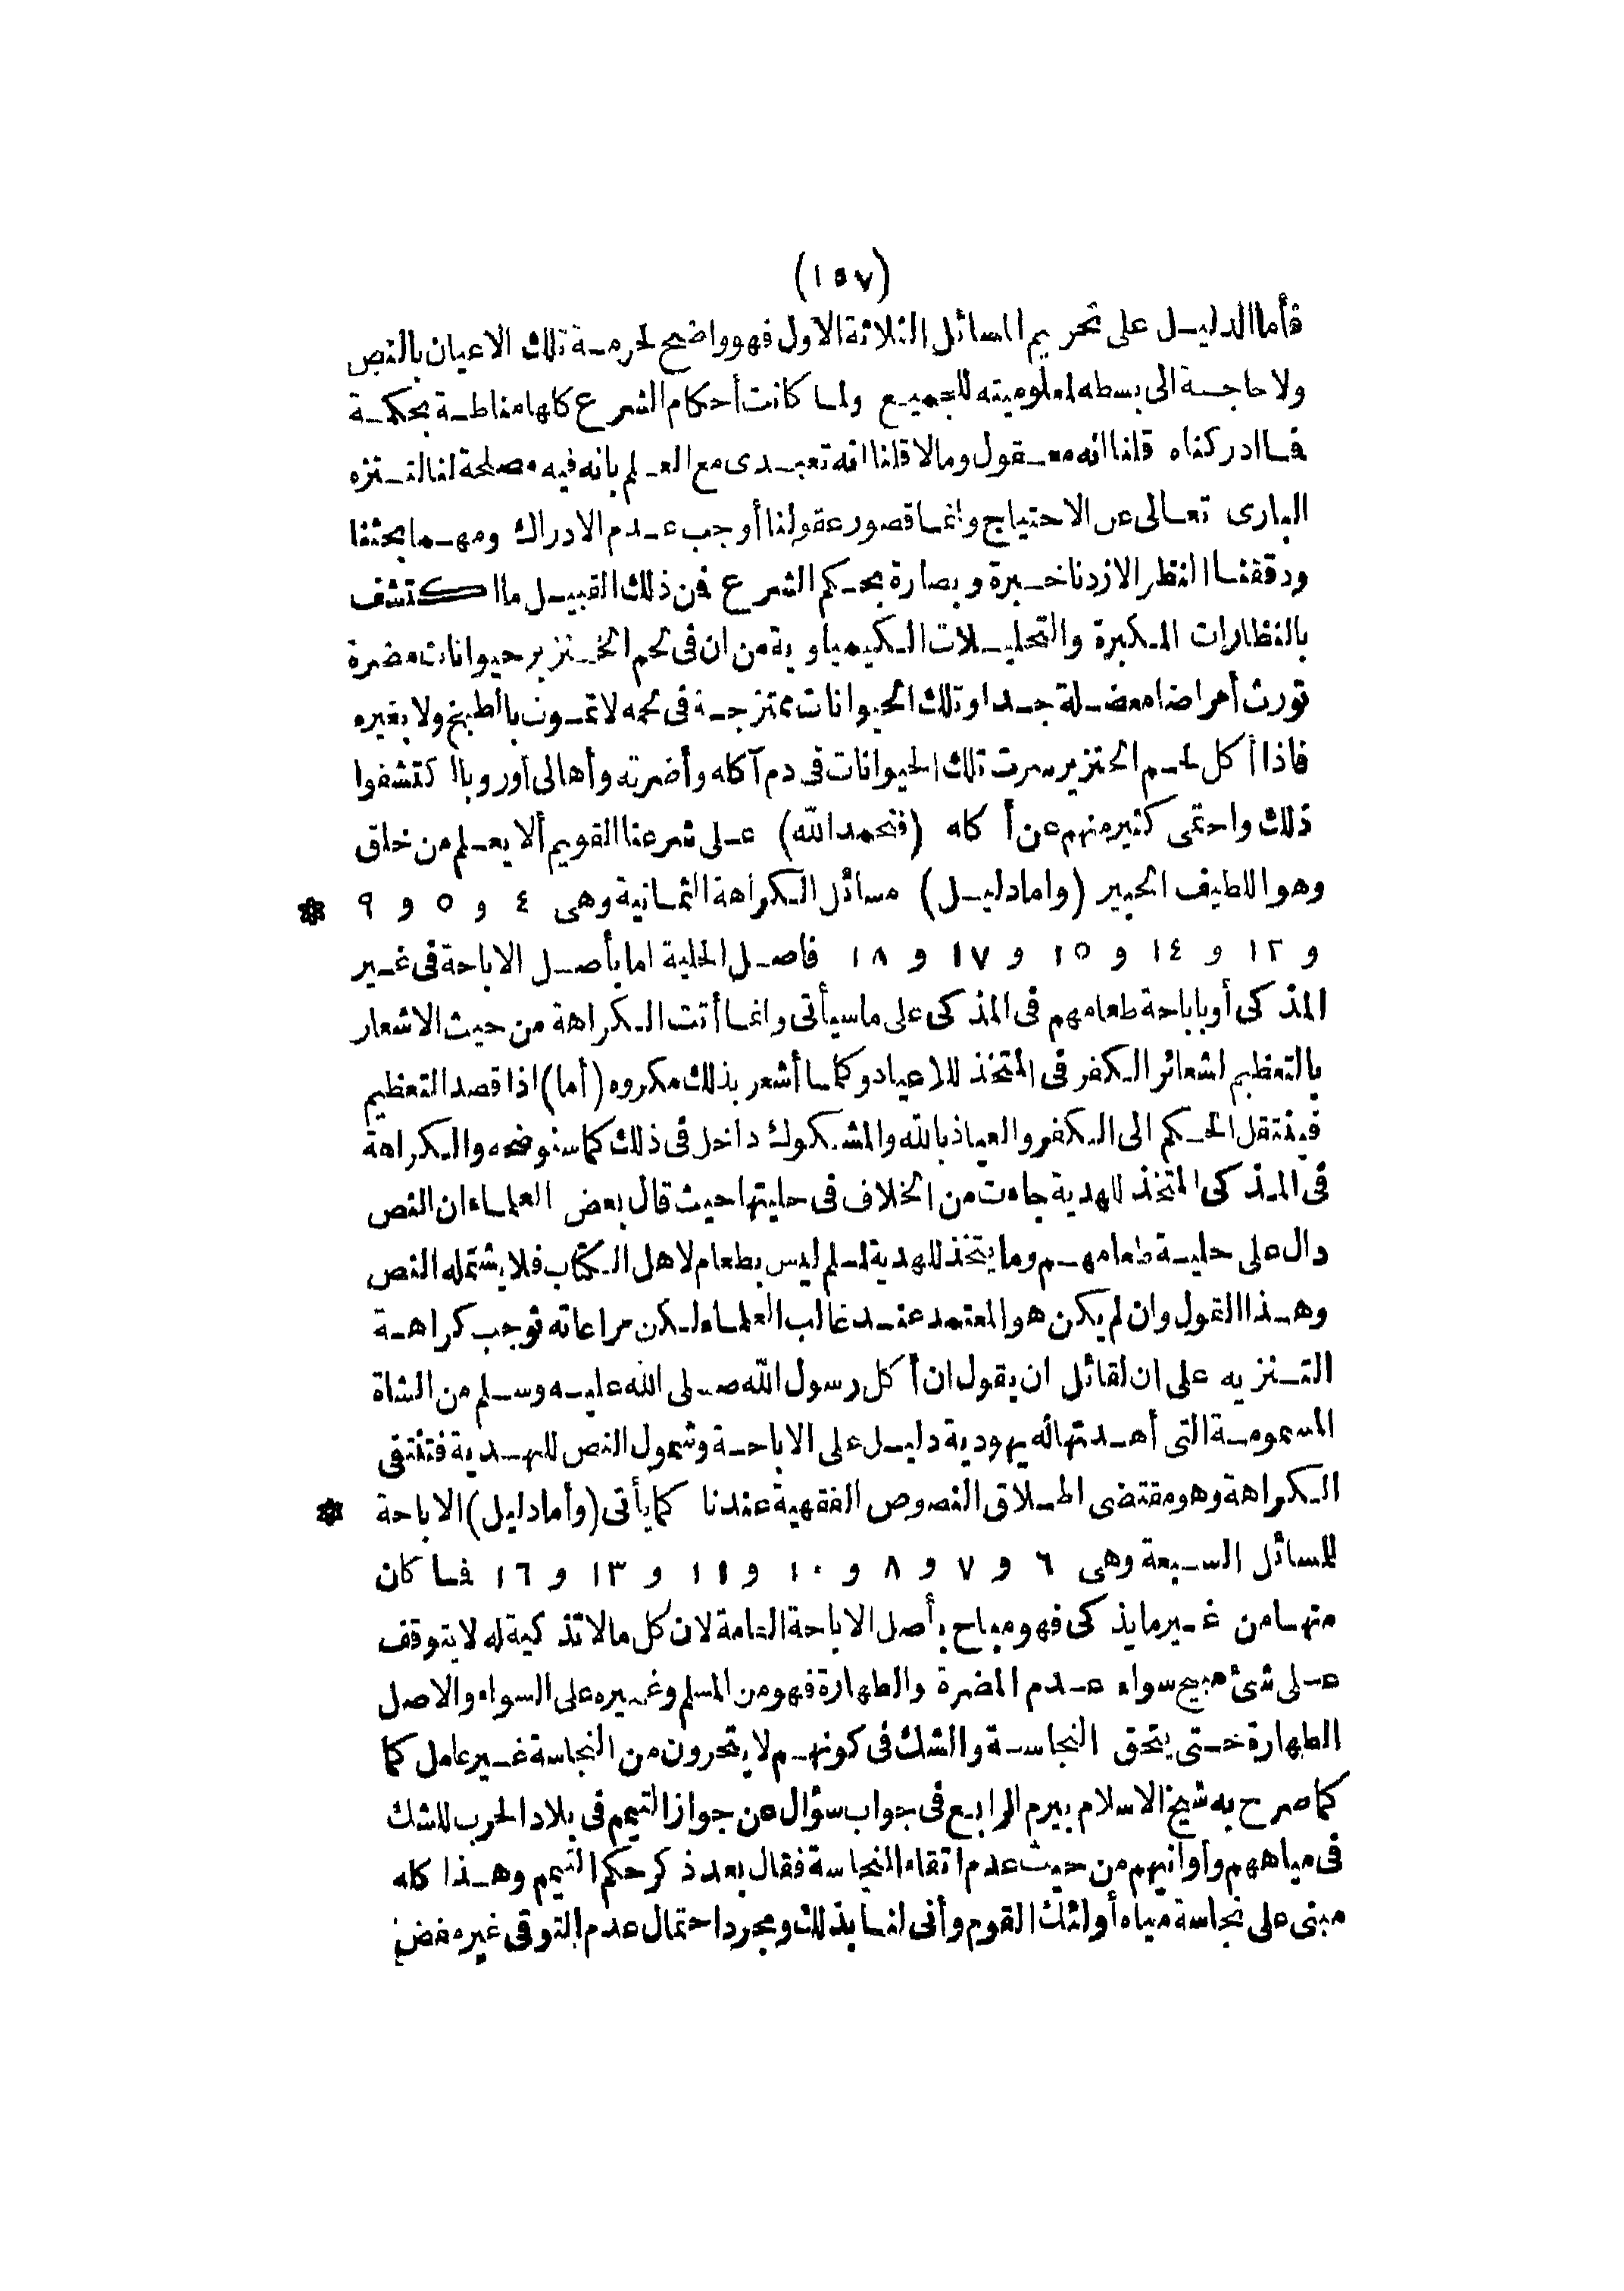 (١٥٧)
فأما الدليل على تحريم المسائل الثلاثة الاول فهو واضح لحرمة تلك الاعيان بالنص
ولا حاجة الى بسطه لمعلوميته للجميع ولما كانت أحكام الشرع كلها مناطة بحكمة
فما ادركناه قلنا انه معقول ومالا قلنا انه تعبدى مع العلم بانه فيه مصلحة لنا لتنزه
البارى تعالى عن الاحتياج وانما قصور عقولنا أوجب عدم الادراك ومهما بحثنا
ودققنا النظر الا زدنا خبرة وبصارة بحكم الشرع فمن ذلك القبيل ما اكتشف
بالنظارات المكبرة والتحليلات الكيمياوية من ان فى لحم الخنزير حيوانات مضرة
تورث أمراضا معضلة جدا وتلك الحيوانات ممتزجة فى لحمه لا تموت بالطبخ ولا بغيره
فاذا أكل لحم الخنزير سرت تلك الحيوانات فى دم آكله وأضرته وأهالى أوروبا اكتشفوا
ذلك واحتمى كثير منهم عن أكله (فنحمد الله) على شرعنا القويم ألا يعلم من خلق
وهو اللطيف الخبير (واما دليل) مسائل الكراهة الثمانية وهى ٤ و ٥ و ٩ *
و ١٢ و ١٤ و ١٥ و ١٧ و ١٨ فاصل الحلية اما بأصل الاباحة فى غير
المذكى أو باباحة طعامهم فى المذكى على ما سيأتى وانما أتت الكراهة من حيث الاشعار
بالتعظيم لشعائر الكفر فى المتخذ للاعياد وكلما أشعر بذلك مكروه (أما) اذا قصد التعظيم
فينتقل الحكم الى الكفر والعياذ بالله والمشكوك داخل فى ذلك كما سنوضحه والكراهة
فى المذكى المتخذ للهدية جاءت من الخلاف فى حليتها حيث قال بعض العلماء ان النص
دال على حلية طعامهم وما يتخذ للهدية لمسلم ليس بطعام لاهل الكتاب فلا يشتمله النص
وهذا القول وان لم يكن هو المعتمد عند غالب العلماء لكن مراعاته توجب كراهة
التنزيه على ان لقائل ان يقول ان أكل رسول الله صلى الله عليه وسلم من الشاة
المسمومة التى أهدتها له يهودية دليل على الاباحة وشمول النص للهدية فتنتفى
الكراهة وهو مقتضى اطلاق النصوص الفقهية عندنا كما يأتى (وأما دليل) الاباحة *
للمسائل السبعة وهى ٦ و ٧ و ٨ و ١٠ و ١١ و ١٣ و ١٦ فما كان
منها من غير ما يذكى فهو مباح بأصل الاباحة العامة لان كل ما لا تذكية له لا يتوقف
على شئ مبيح سواء عدم المضرة والطهارة فهو من المسلم وغيره على السواء والاصل
الطهارة حتى يتحق النجاسة والشك فى كونهم لا يتحرون من النجاسة غير عامل كما
كما صرح به شيخ الاسلام بيرم الرابع فى جواب سؤال عن جواز التيمم فى بلاد الحرب للشك
فى مياههم وأوانيهم من حيث عدم اتقاء النجاسة فقال بعد ذكر حكم التيمم وهذا كله
مبنى على نجاسة مياه أولئك القوم وأنى لنا بذلك ومجرد احتمال عدم التوقى غير مفض